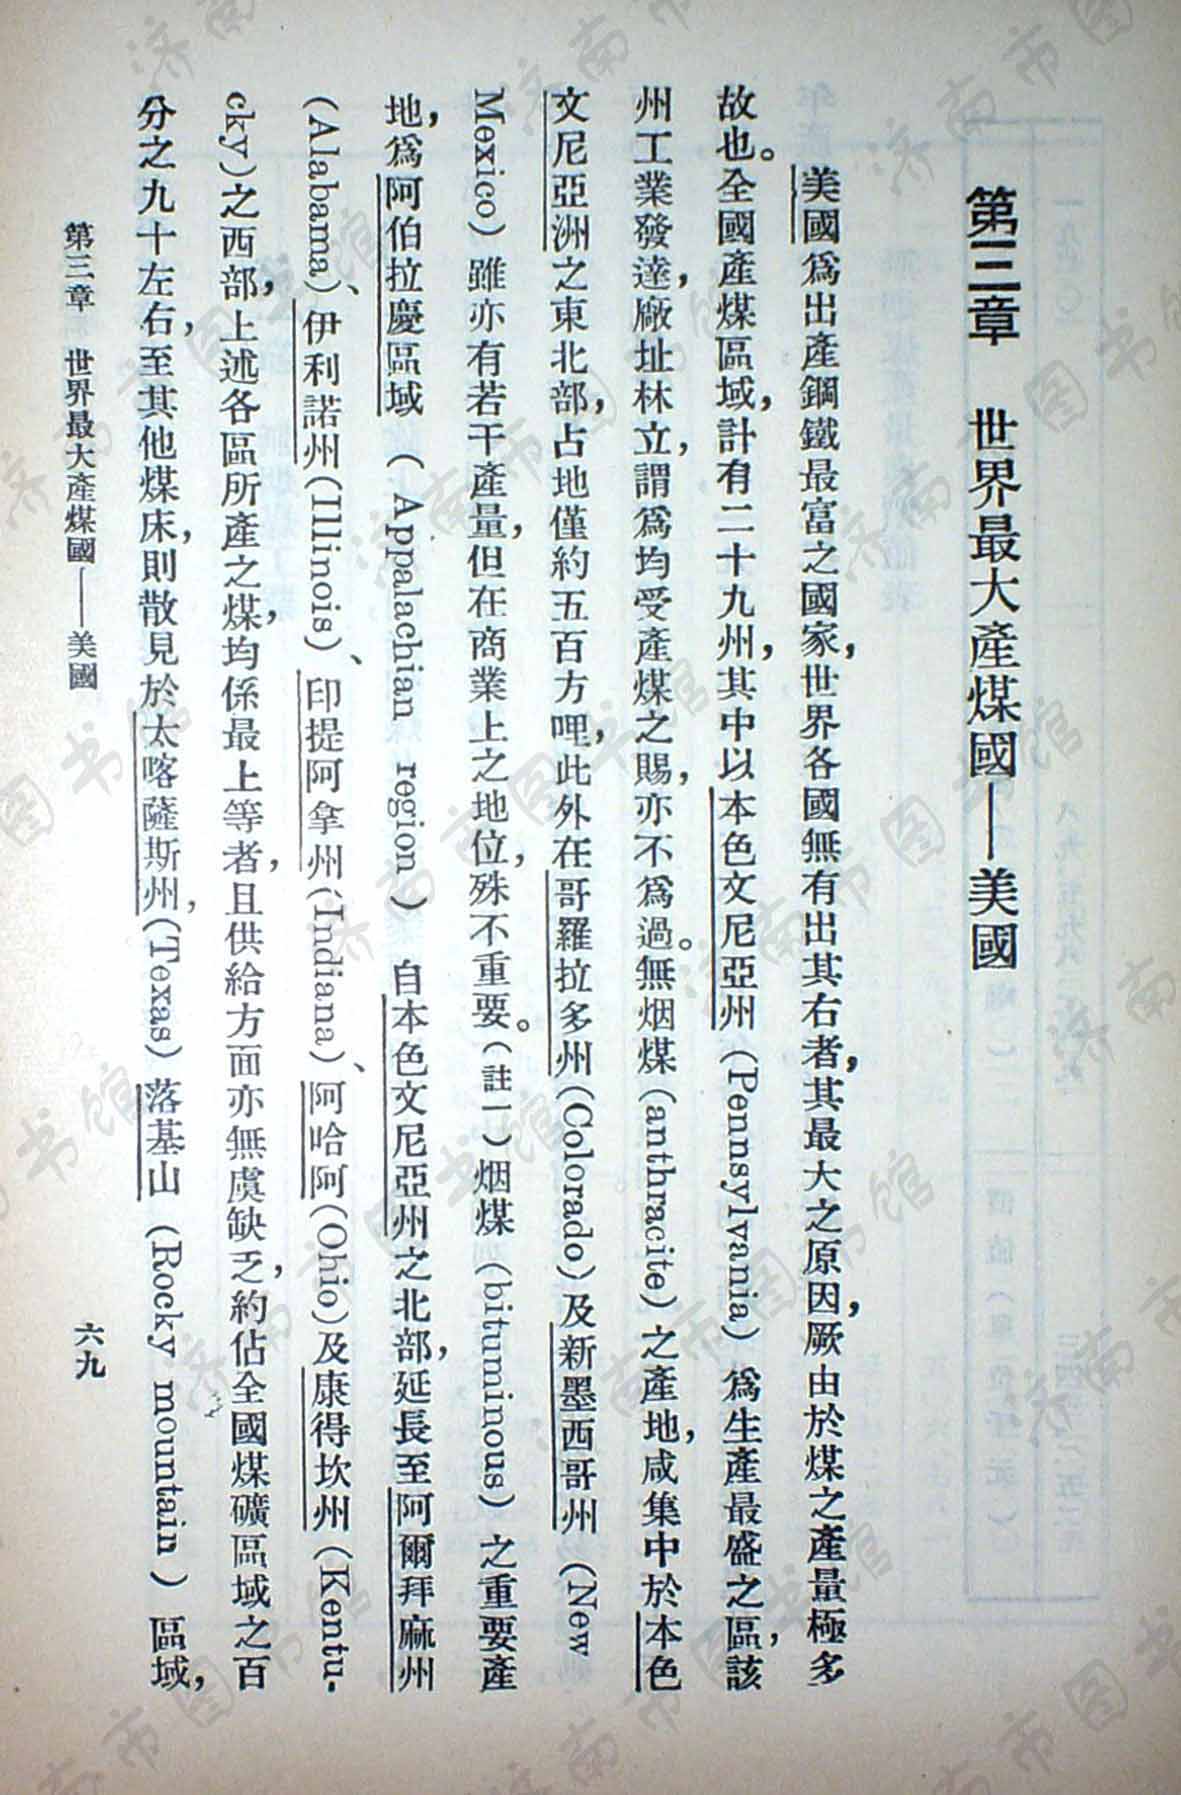 第三章　世界最大產煤國——美國
美國爲出產鋼鐵最富之國家，世界各國無有出其右者，其最大之原因，厥由於煤之產量極多
故也。全國產煤區域，計有二十九州，其中以本色文尼亞州（Pennsylvania）爲生產最盛之區，該
州工業發達，廠址林立，謂爲均受產煤之賜，亦不爲過。無烟煤（anthracite）之產地，咸集中於本色
文尼亞洲之東北部，占地僅約五百方哩，此外在哥羅拉多州（Colorado）及新墨西哥州（New
Mexico）雖亦有若干產量，但在商業上之地位，殊不重要。（註一）烟煤（bituminous）之重要產
地，爲阿伯拉慶區域（Appalachian region）自本色文尼亞州之北部，延長至阿爾拜麻州
（Alabama）、伊利諾州（Illinois）、印提阿拿州（Indiana）、阿哈阿（Ohio）及康得坎州（Kentu-
cky）之西部，上述各區所產之煤，均係最上等者，且供給方面亦無虞缺乏，約佔全國煤礦區域之百
分之九十左右，至其他煤床，則散見於太喀薩斯州，（Texas）落基山（Rocky mountain）區域，
第三章　世界最大產煤國——美國
六九
济南市图书馆